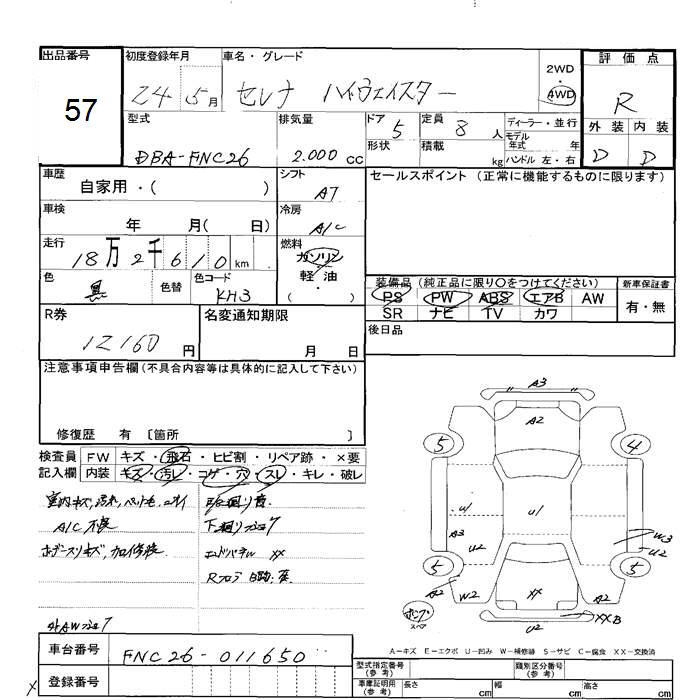 出品番号 初度登録年月 車名・グレード 評価点
57
24 5月 セレナ ハイウェイスター
2WD
・
4WD
R
型式 排気量 ドア 5 定員 8人 ディーラー・並行
形状 積載 kg モデル年式 年
ハンドル 左・右
外装 内装
DBA-FNC26 2.000 cc
D D
車歴 シフト セールスポイント (正常に機能するものに限ります)
自家用・( ) AT
車検 冷房
年 月( 日) A/C
走行 燃料
18万2千610km ガソリン
軽・油
( )
色 色替 色コード
黒 KH3
装備品 (純正品に限り○をつけてください) 新車保証書
PS PW ABS エアB AW 有・無
SR ナビ TV カワ
R券 名変通知期限 後日品
12160円 月 日
注意事項申告欄 (不具合内容等は具体的に記入して下さい)
修復歴 有 〔箇所 〕
検査員 FW キズ・飛石・ヒビ割・リペア跡・×要
記入欄 内装 キズ・汚レ・コゲ・穴・スレ・キレ・破レ
室内キズ,汚れ,
A/C 不良
外AW
エンドパネル XX
Rフロア
A3
A2
5 4
U1 U1
A3
U2
W3
U2
5 5
A2 W2 XX A2
XXB
U2
スペア
A-キズ E-エクボ U-凹み W-補修跡 S-サビ C-腐食 XX-交換済
車台番号 FNC26-011650
登録番号
型式指定番号 (参考) 類別区分番号 (参考)
車庫証明用 (参考) 長さ cm 幅 cm 高さ cm